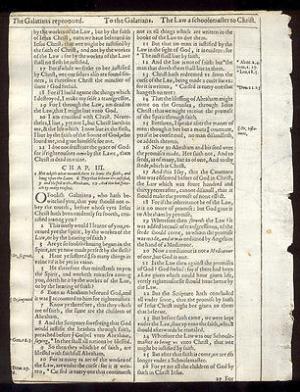 The Galatians reproved. To the Galatians. The Law a schoolmaster to Christ.
by the works of the Law, but by the faith
of Jesus Christ, even we have believed in
Jesus Christ, that we might be justified by
the faith of Christ, and not by the works
of the Law: for by the works of the Law
shall no flesh be justified.
17 But if while we seeke to be
by Christ, we our selves also are found
sinners, is therefore Christ the minister of
sinne? God forbid.
18 For if I build againe the things which
I destroyed, I make my selfe a transgressor.
19 For I through the Law, am dead to
the Law, that I might live unto God.
20 I am crucified with Christ.
I live, yet not I, but Christ liveth in
me, &
by the faith of the Sonne of God,
loved me, and gave himselfe for me.
21 I doe not frustrate the grace of God:
for if righteousnes come by the Law, then
Christ is dead in vaine.
CHAP. III.
O Foolish Galatians, who hath
witched you, that you should not
the trueth, before whose eyes Jesus
Christ hath been evidently set forth,
among you?
2 This onely would I learne of you,
ye the Spirit, by the works of the
Law, or by the hearing of faith?
3 Are ye so foolish? having begun in the
Spirit, are ye now made perfect by the flesh?
4 Have ye suffered so many things in
vaine? if it be yet in vaine.
5 He therefore that ministreth to you
the Spirit, and worketh miracles among
you, doeth he it by the works of the Law,
or by the hearing of faith?
6 Even as Abraham beleeved God, and
it was accounted to him for righteousnes.
7 Know ye therefore, that they which
are of faith, the same are the children of
Abraham.
8 And the Scripture foreseeing that God
would justifie the heathen through faith,
before the Gospel unto Abraham,
saying, In thee shall all nations be blessed.
9 So then, they which be of faith, are
blessed with faithfull Abraham.
10 For as many as are of the works of
the Law, are under the curse: for it is
Cursed is every one that continueth
not in all things which are written in the
booke of the Law to doe them.
11 But that no man is justified by the
Law in the sight of God, it is evident: for
The just shall live by faith.
12 And the Law is not of faith: but the
man that doeth them, shall live in them.
13 Christ hath redeemed us from the
curse of the Law, being made a curse for
us: for it is written, Cursed is every one that
hangeth on tree:
14 That the blessing of Abraham might
come on the Gentiles, through Jesus
Christ: that we might receive the promise
of the Spirit through faith.
15 Brethren, I speake after the maner of
men: though it be but a mans covenant,
yet if it be confirmed, no man disanulleth,
or addeth thereto.
16 Now to Abraham and his seed were
the promises made. He saith not, And to
seeds, as of many, but as of one, And to
thy seed, which is Christ.
17 And this I say, that the Covenant
that was confirmed before of God in Christ,
the Law which was foure hundred and
thirty yeeres after, cannot disanull, that it
should make the promise of none effect.
18 For if the inheritance be of the Law,
it is no more of promise: but God gave it
to Abraham by promise.
19 Wherefore then serveth the Law? it
was added because of transgressions, till the
seed should come, to whom the promise
was made, and it was ordained by Angels in
the hand of a Mediatour.
20 Now a mediatour is not a Mediatour
of one, but God is one.
21 Is the Law then against the promises
of God? God forbid: for if there had been
a Law given which could have given life,
verily righteousnes should have been by
the Law.
22 But the Scripture hath concluded
all under sinne, that the promise by faith of
Jesus Christ might be given to them that
beleeve.
23 But before faith came, we were kept
under the Law, shut up unto the faith, which
should afterwards be revealed.
24 Wherefore the Law was our Schoole-
master to bring us unto Christ, that we
might be justified by faith.
25 But after that faith is come, we are no
longer under a Schoolemaster.
26 For ye are all the children of God by
faith in Christ Jesus.
27 For